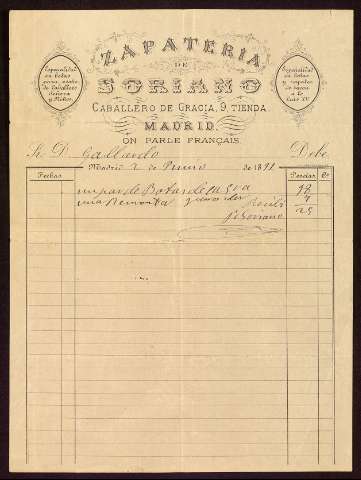 ZAPATERÍA
DE
SORIANO
CABALLERO DE GRACIA, 9, TIENDA
MADRID.
ON PARLE FRANÇAIS.
Especialidad
en botas
para
de Caballero
Señora
y Niños.
Especialidad
en botas
y zapatos
Luis XV.
Sr. D. Gallardo Debe
Madrid 2 de 189
Fechas Pesetas Cs.
un par de Botas de 18
una Remonta 7
Recibí 25
Soriano